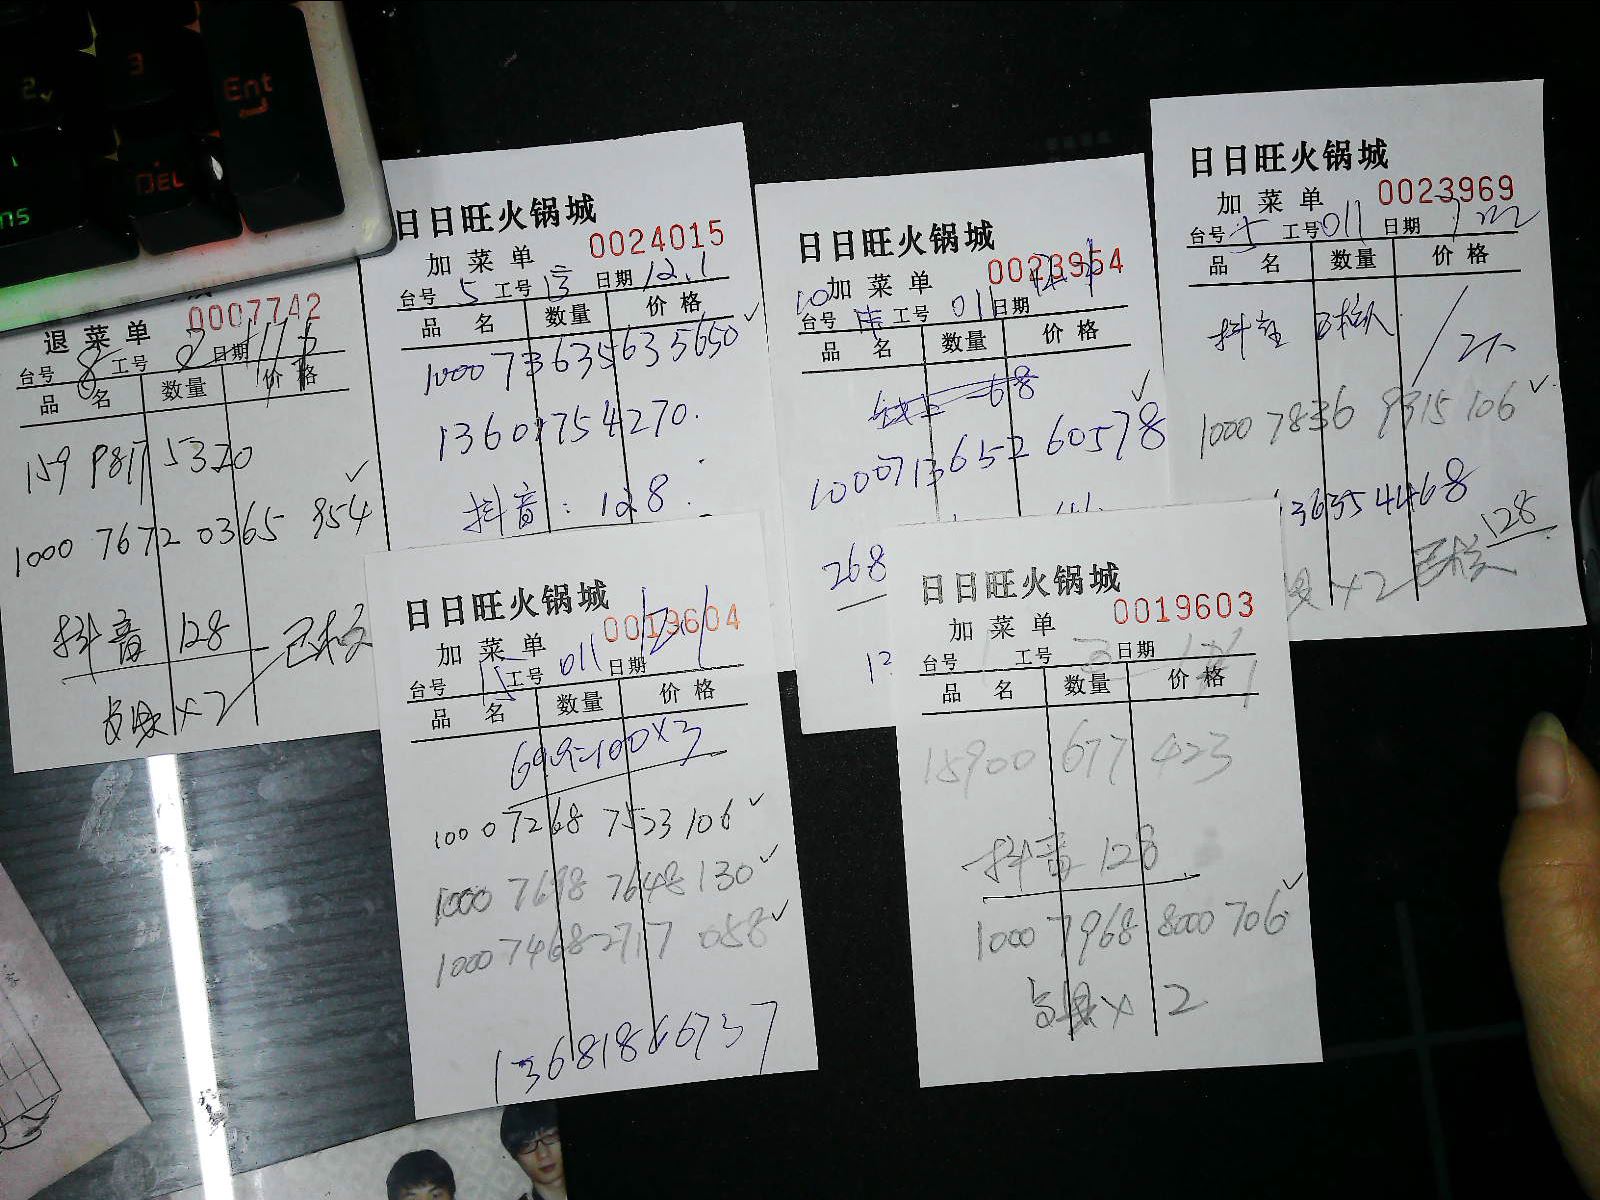 2
3
Ent
1
DEL
ns
退菜单 0007742
台号 8 工号 2 日期
品 名 数量 价格
159 9817 5320
1000 7672 0365 954 ✓
抖音 128 已核
鱼头 x2
日日旺火锅城
加菜单 0024015
台号 5 工号 日期 12.1
品 名 数量 价格
1000 7363563 5650 ✓
13601754270.
抖音: 128.
日日旺火锅城
加菜单 0023954
台号 工号 011 日期
品 名 数量 价格
68
1000713652 60578 ✓
268
12
日日旺火锅城
加菜单 0023969
台号 5 工号 011 日期
品 名 数量 价格
抖音 已核
1000 7836 9315 106 ✓
1363544468
128
x2 已核
日日旺火锅城
加菜单 0019604
台号 工号 011 日期 12.1
品 名 数量 价格
699-100x3
1000 7268 7523 106 ✓
1000 7698 7648 130 ✓
1000 7468 2717 058 ✓
13681866737
日日旺火锅城
加菜单 0019603
台号 1 工号 日期
品 名 数量 价格
15900 677 423
抖音 128
1000 7968 8000 706 ✓
x 2